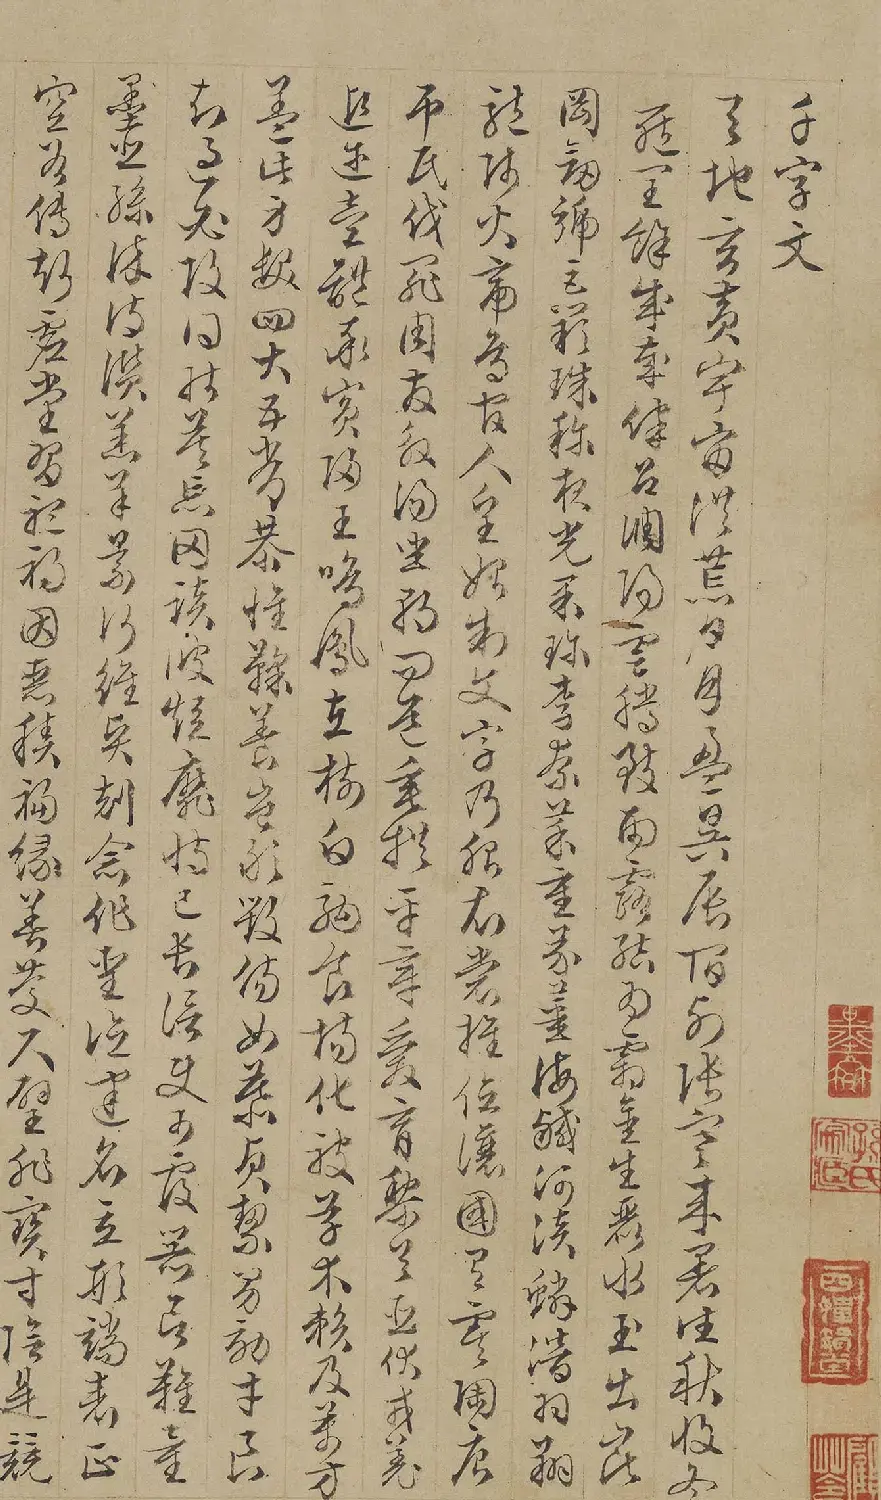 千字文
天地玄黃宇宙洪荒日月盈昃辰宿列張寒來暑往秋收冬
藏閏餘成歲律呂調陽雲騰致雨露結為霜金生麗水玉出崑
岡劍號巨闕珠稱夜光果珍李柰菜重芥薑海鹹河淡鱗潛羽翔
龍師火帝鳥官人皇始制文字乃服衣裳推位讓國有虞陶唐
弔民伐罪周發殷湯坐朝問道垂拱平章愛育黎首臣伏戎羌
遐邇壹體率賓歸王鳴鳳在樹白駒食場化被草木賴及萬方
蓋此身髮四大五常恭惟鞠養豈敢毀傷女慕貞絜男效才良
知過必改得能莫忘罔談彼短靡恃己長信使可覆器欲難量
墨悲絲染詩讚羔羊景行維賢剋念作聖德建名立形端表正
空谷傳聲虛堂習聽禍因惡積福緣善慶尺璧非寶寸陰是競